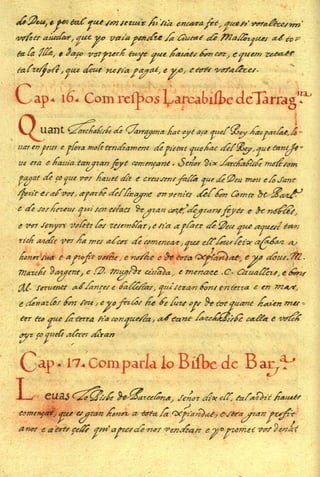 de Deu, e per tal que son servir hi sia encara fet, que si vosaltres mi
volets aiudar, que yo vaia pendre la Ciutat de Mallorques ab to-
ta la Illa, e daço vos prech tuyt que haiats bon cor, e que en reebats
tal respost, que Deus ne sia pagat, e yo, e tots vosaltres.
Cap. 16. Com respos Larcabisbe de Tarrag.na
Quant Larchabisbe de Tarragona hac oyt aço quel Rey hac parlat, le-
uas en peus e plora molt tendrament de pietat que hac del Rey, que tan jo-
ve era e havia tan gran feyt començat. Señor dix Larchabisbe molt som
pagat de ço que vos havets dit e creu sens falla que de Deu mou e lo Sant
Sprit es ab vos, apart del linatge on venits del bon Comte de Bar.na
e de sos hereus qui son estats de gran cor e de grans feyts e de nobles,
e vos senyor volets los resemblar, e sia a plaer de Deu que aquest tan
rich ardit vos ha mes al cor de començar, que ell lous leix acabar a
honor sua e a profit vostre, e nostre e de tota Xpiandat, e yo dous M.
marchs dargent, e D. muygs de civada, e menare C. Cavallers, e bens
M. servents ab lançes e ballestes, qui seran bons en terra e en mar,
e donarlos bon sou, e yo fer los he be lurs ops de tot quant haien mes-
ter tro que la terra sia conquesta, ab tant Larchabisbe calla e volch
oyr ço quels altres diran
Cap. 17. Com parla lo Bisbe de Bar.na
Levas Lo Bisbe de Barcelona, señor dix ell, tal ardit havets
començat, que es gran honor a tota la Xpiandat, e sera gran profit
a nos e a tots çells qui apres de nos vendran e yo promet vos denant